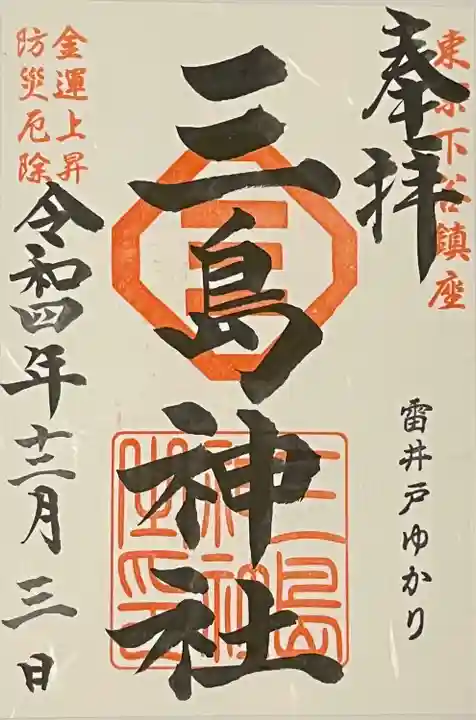 奉拝
東京下谷鎮座
雷井戸ゆかり
三島神社
三島神社之印
金運上昇
防災厄除
令和四年十二月三日